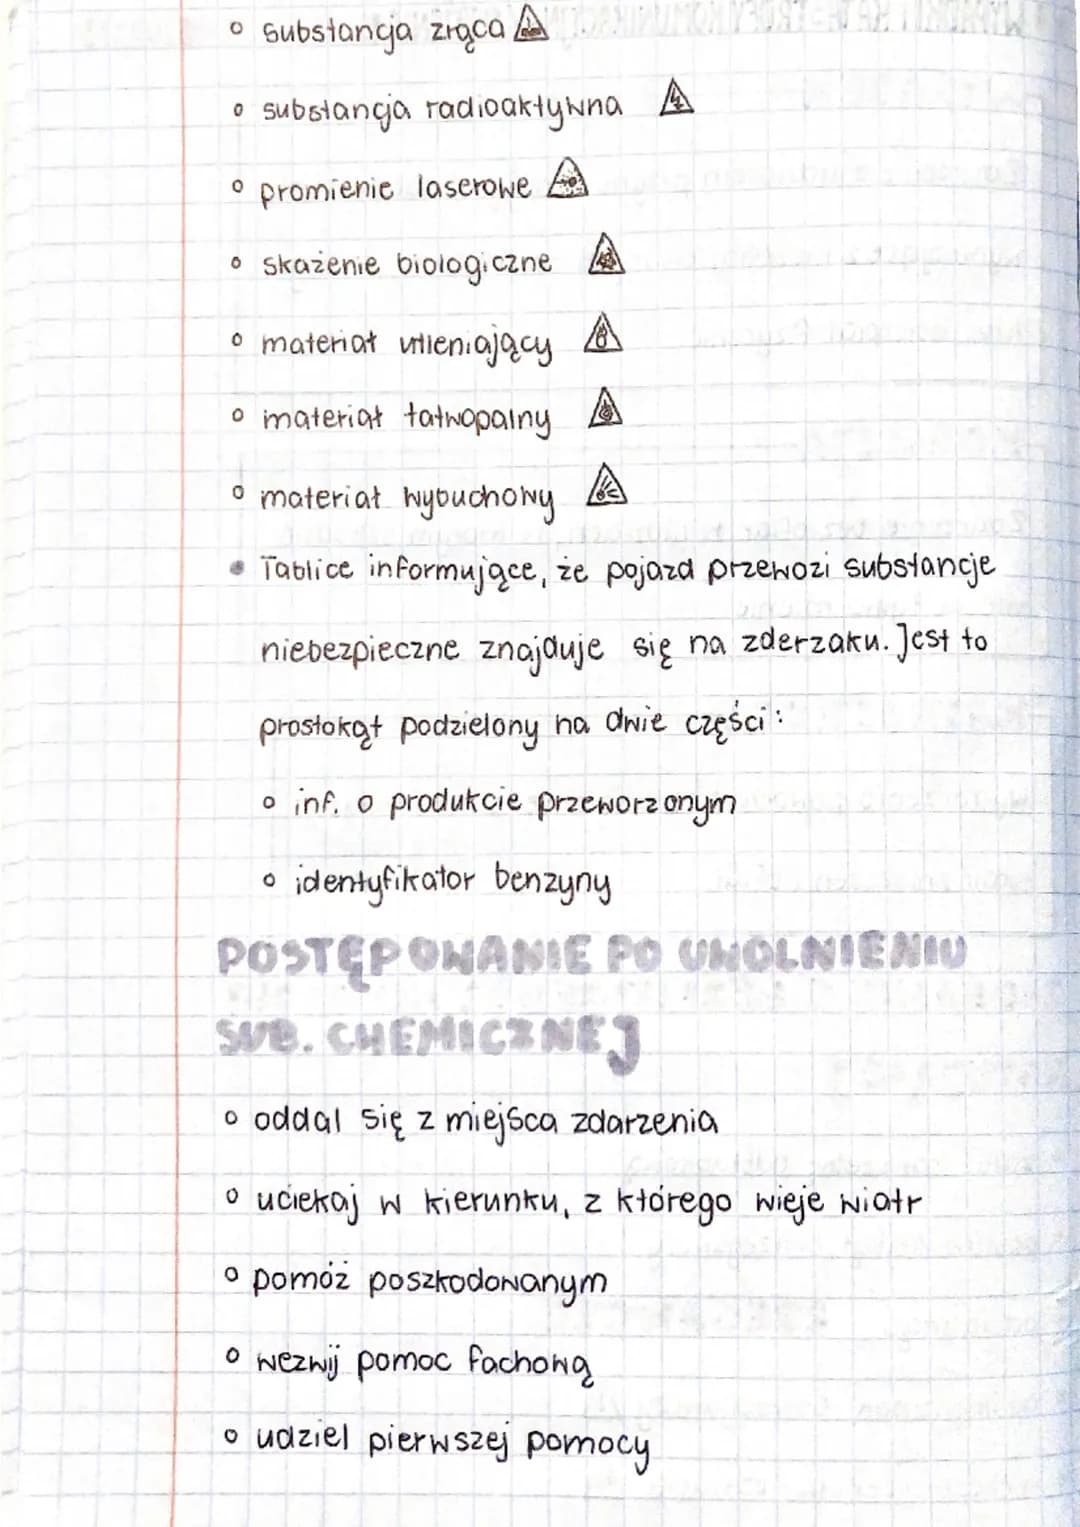 substancja zrąca
substancja radioaktywna
promienie laserowe
skażenie biologiczne
materiał utleniający
materiał łatwopalny
materiał wybuchowy
Tablice informujące, że pojazd przewozi substancje
niebezpieczne znajduje się na zderzaku. Jest to
prostokąt podzielony na dwie części:
inf. o produkcie przeworzonym
identyfikator benzyny
POSTĘPOWANIE PO UWOLNIENIU
SUB. CHEMICZNEJ
oddal się z miejsca zdarzenia
uciekaj w kierunku, z którego wieje wiatr
pomóż poszkodowanym
wezwij pomoc fachową
udziel pierwszej pomocy